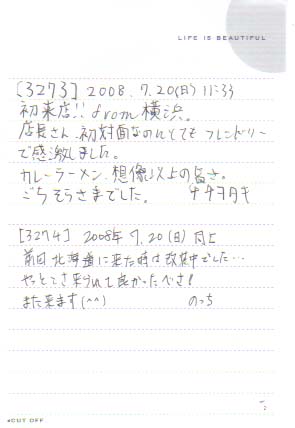 LIFE IS BEAUTIFUL
[3273] 2008.7.20(日) 11:33
初来店!! from 横浜。
店長さん、初対面なのにとても フレンドリー
で感激しました。
カレーラーメン、想像以上の旨さ。
ごちそうさまでした。 ナナヲタキ
[3274] 2008年 7.20(日) 同上
前回 北海道に来た時は改装中でした…
やっとこさ来られて良かったべさ!
また来ます(^^) のっち
CUT OFF